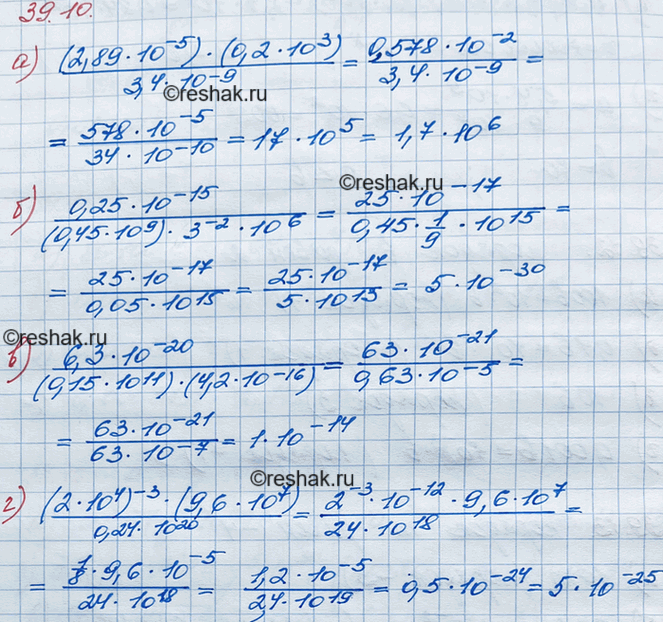 39.10.
а) (2,89·10⁻⁵)·(0,2·10³) / 3,4·10⁻⁹ = 0,578·10⁻² / 3,4·10⁻⁹ =
©reshak.ru
= 578·10⁻⁵ / 34·10⁻¹⁰ = 17·10⁵ = 1,7·10⁶
©reshak.ru
б) 0,25·10⁻¹⁵ / (0,45·10⁹)·3⁻²·10⁶ = 25·10⁻¹⁷ / 0,45·1/9·10¹⁵ =
= 25·10⁻¹⁷ / 0,05·10¹⁵ = 25·10⁻¹⁷ / 5·10¹³ = 5·10⁻³⁰
©reshak.ru
в) 6,3·10⁻²⁰ / (0,15·10¹¹)·(4,2·10⁻¹⁶) = 63·10⁻²¹ / 0,63·10⁻⁵ =
= 63·10⁻²¹ / 63·10⁻⁷ = 1·10⁻¹⁴
©reshak.ru
г) (2·10⁴)⁻³·(9,6·10⁷) / 0,24·10²⁰ = 2⁻³·10⁻¹²·9,6·10⁷ / 24·10¹⁸ =
= 1/8·9,6·10⁻⁵ / 24·10¹⁸ = 1,2·10⁻⁵ / 2,4·10¹⁹ = 0,5·10⁻²⁴ = 5·10⁻²⁵